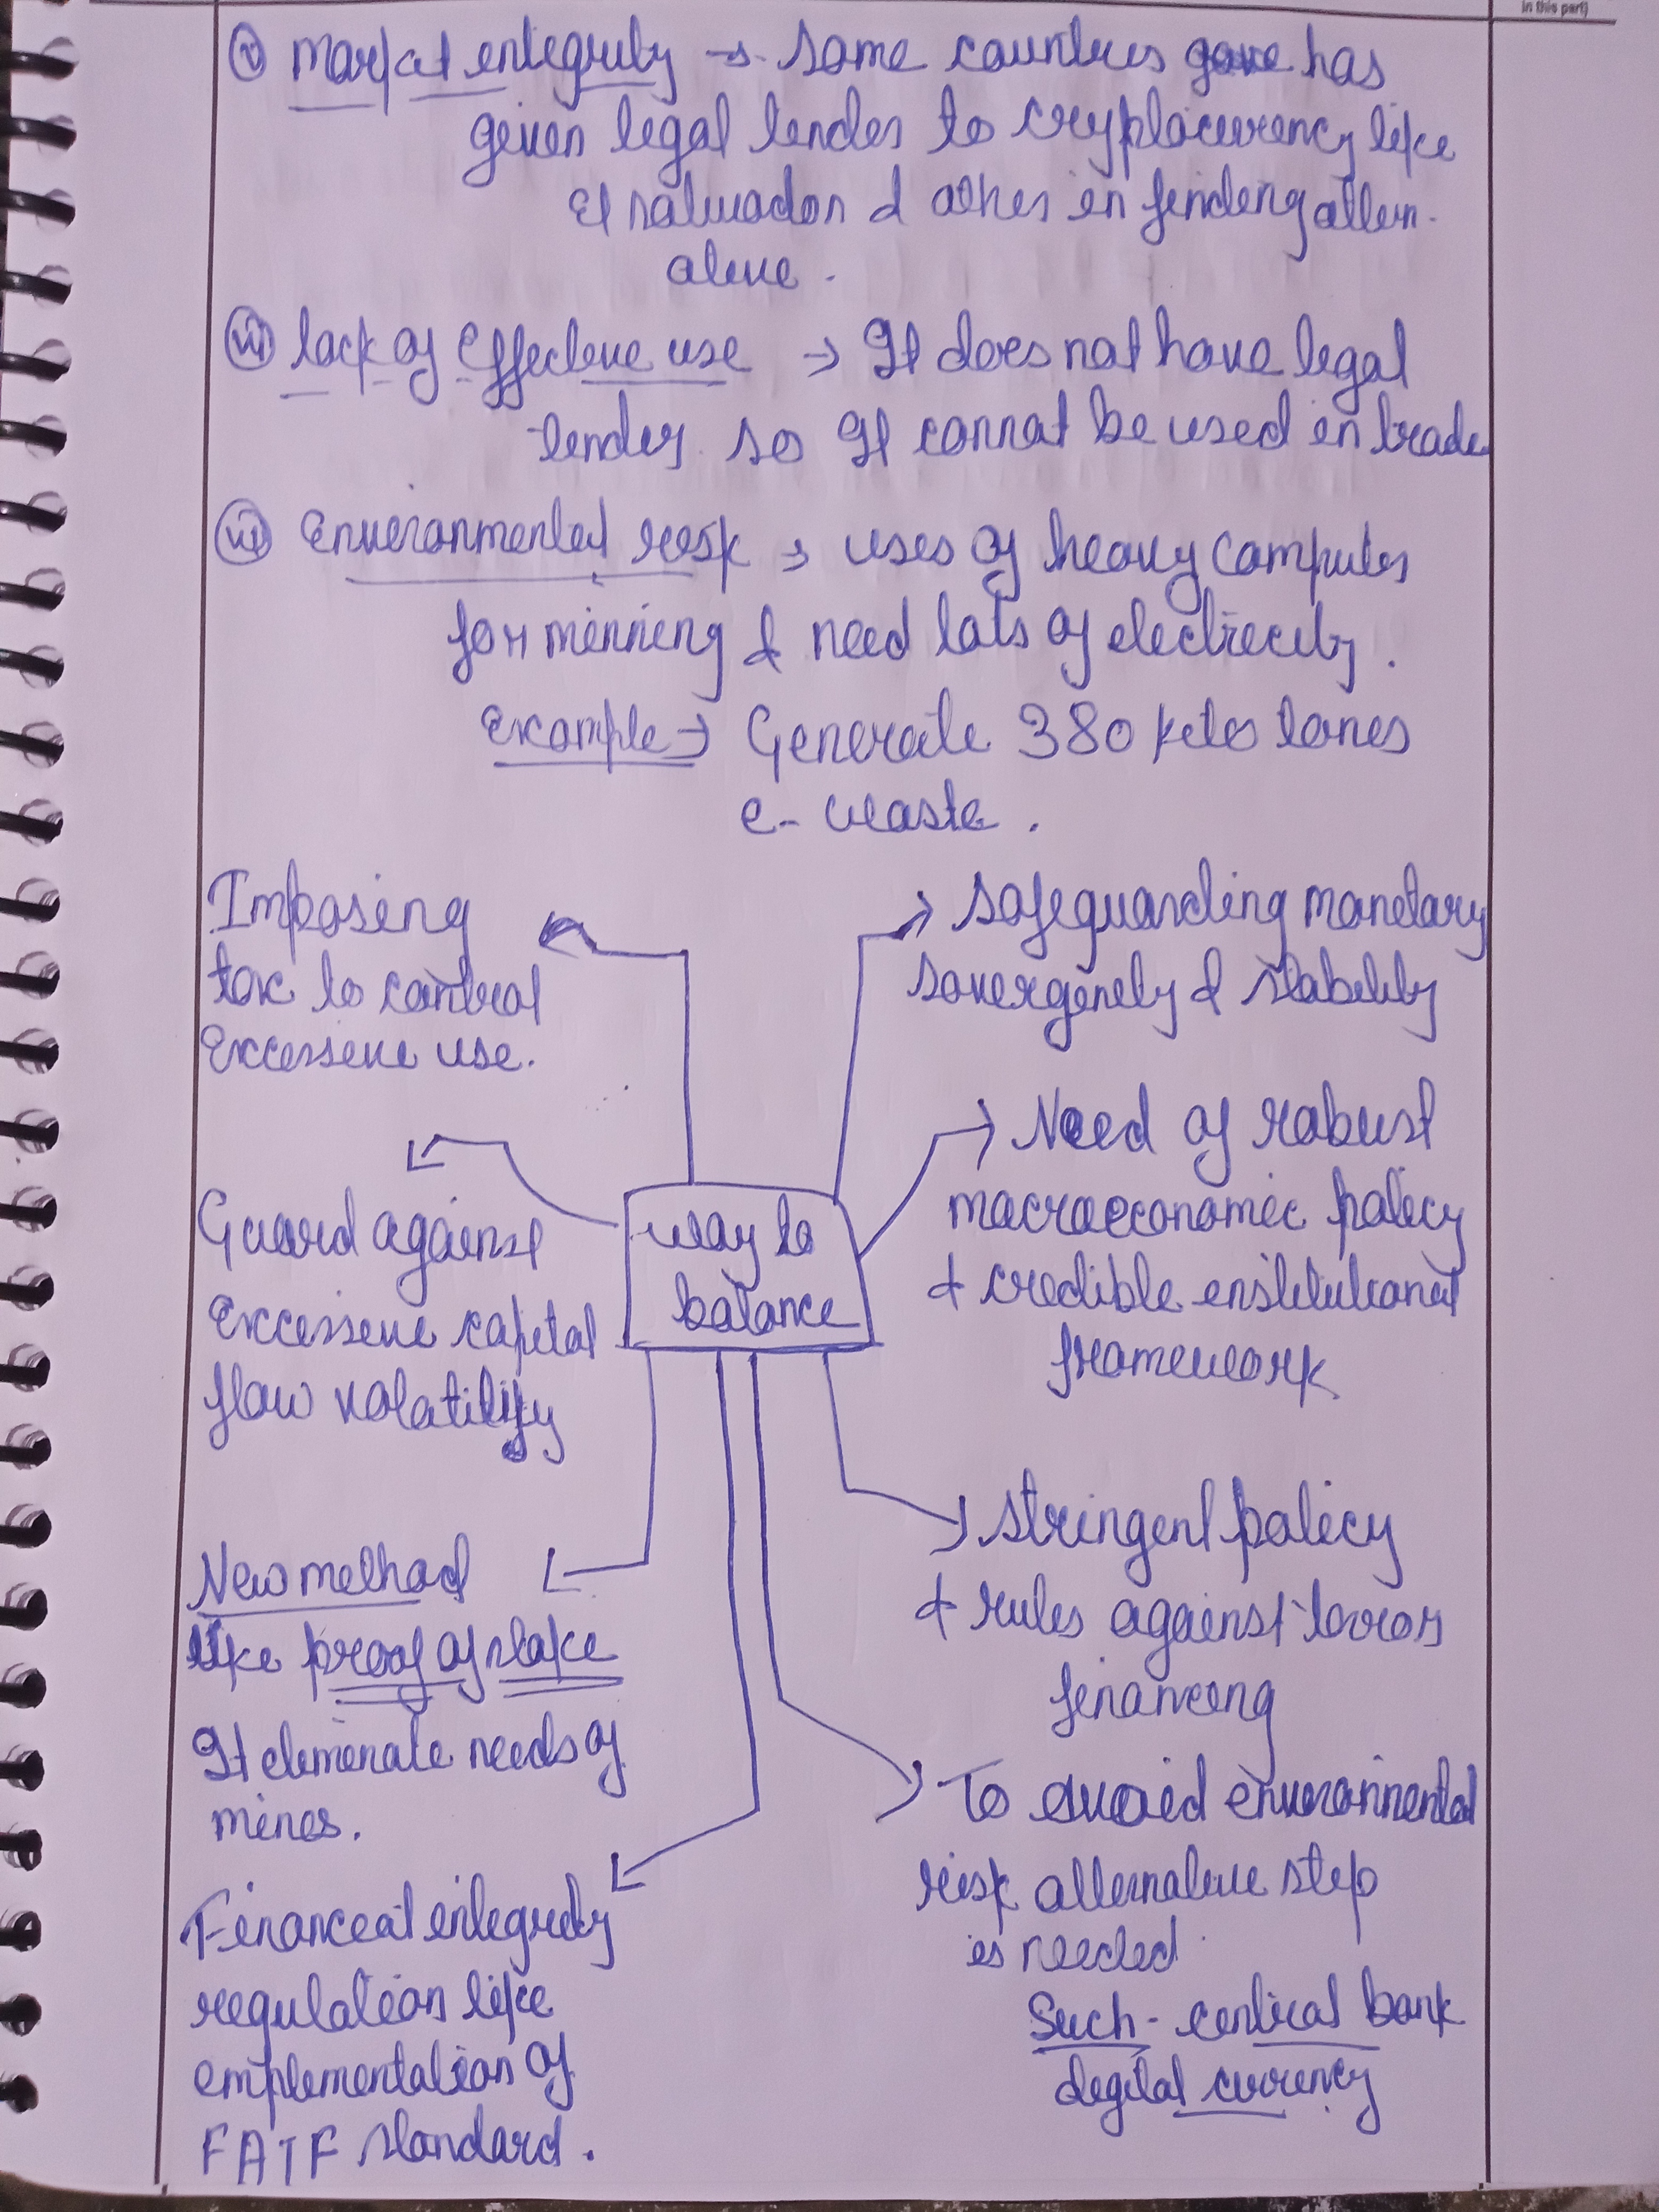 in this part)
(v) Market integrity → Some countries gave has
given legal tender to cryptocurrency like
El salvador & other in finding altern-
ative.
(vi) lack of Effective use → It does not have legal
tender so It cannot be used in trade
(vi) Environmental risk → uses of heavy computer
for minning & need lots of electricity.
Example → Generate 380 kilo tones
e-waste.
Imposing
tax to control
Excessive use.
→ Safeguarding monetary
Sovergenety & stability
Guard against
Excessive capital
flow volatility
way to
balance
→ Need of robust
macroeconomic policy
& credible institutional
framework
New method
like proof of stake
It eliminate needs of
miners.
→ stringent policy
& rules against terror
financing
→ To avoid environmental
risk alternative step
is needed
Such - central bank
digital currency
Financial integrity
regulation like
implementation of
FATF standard.